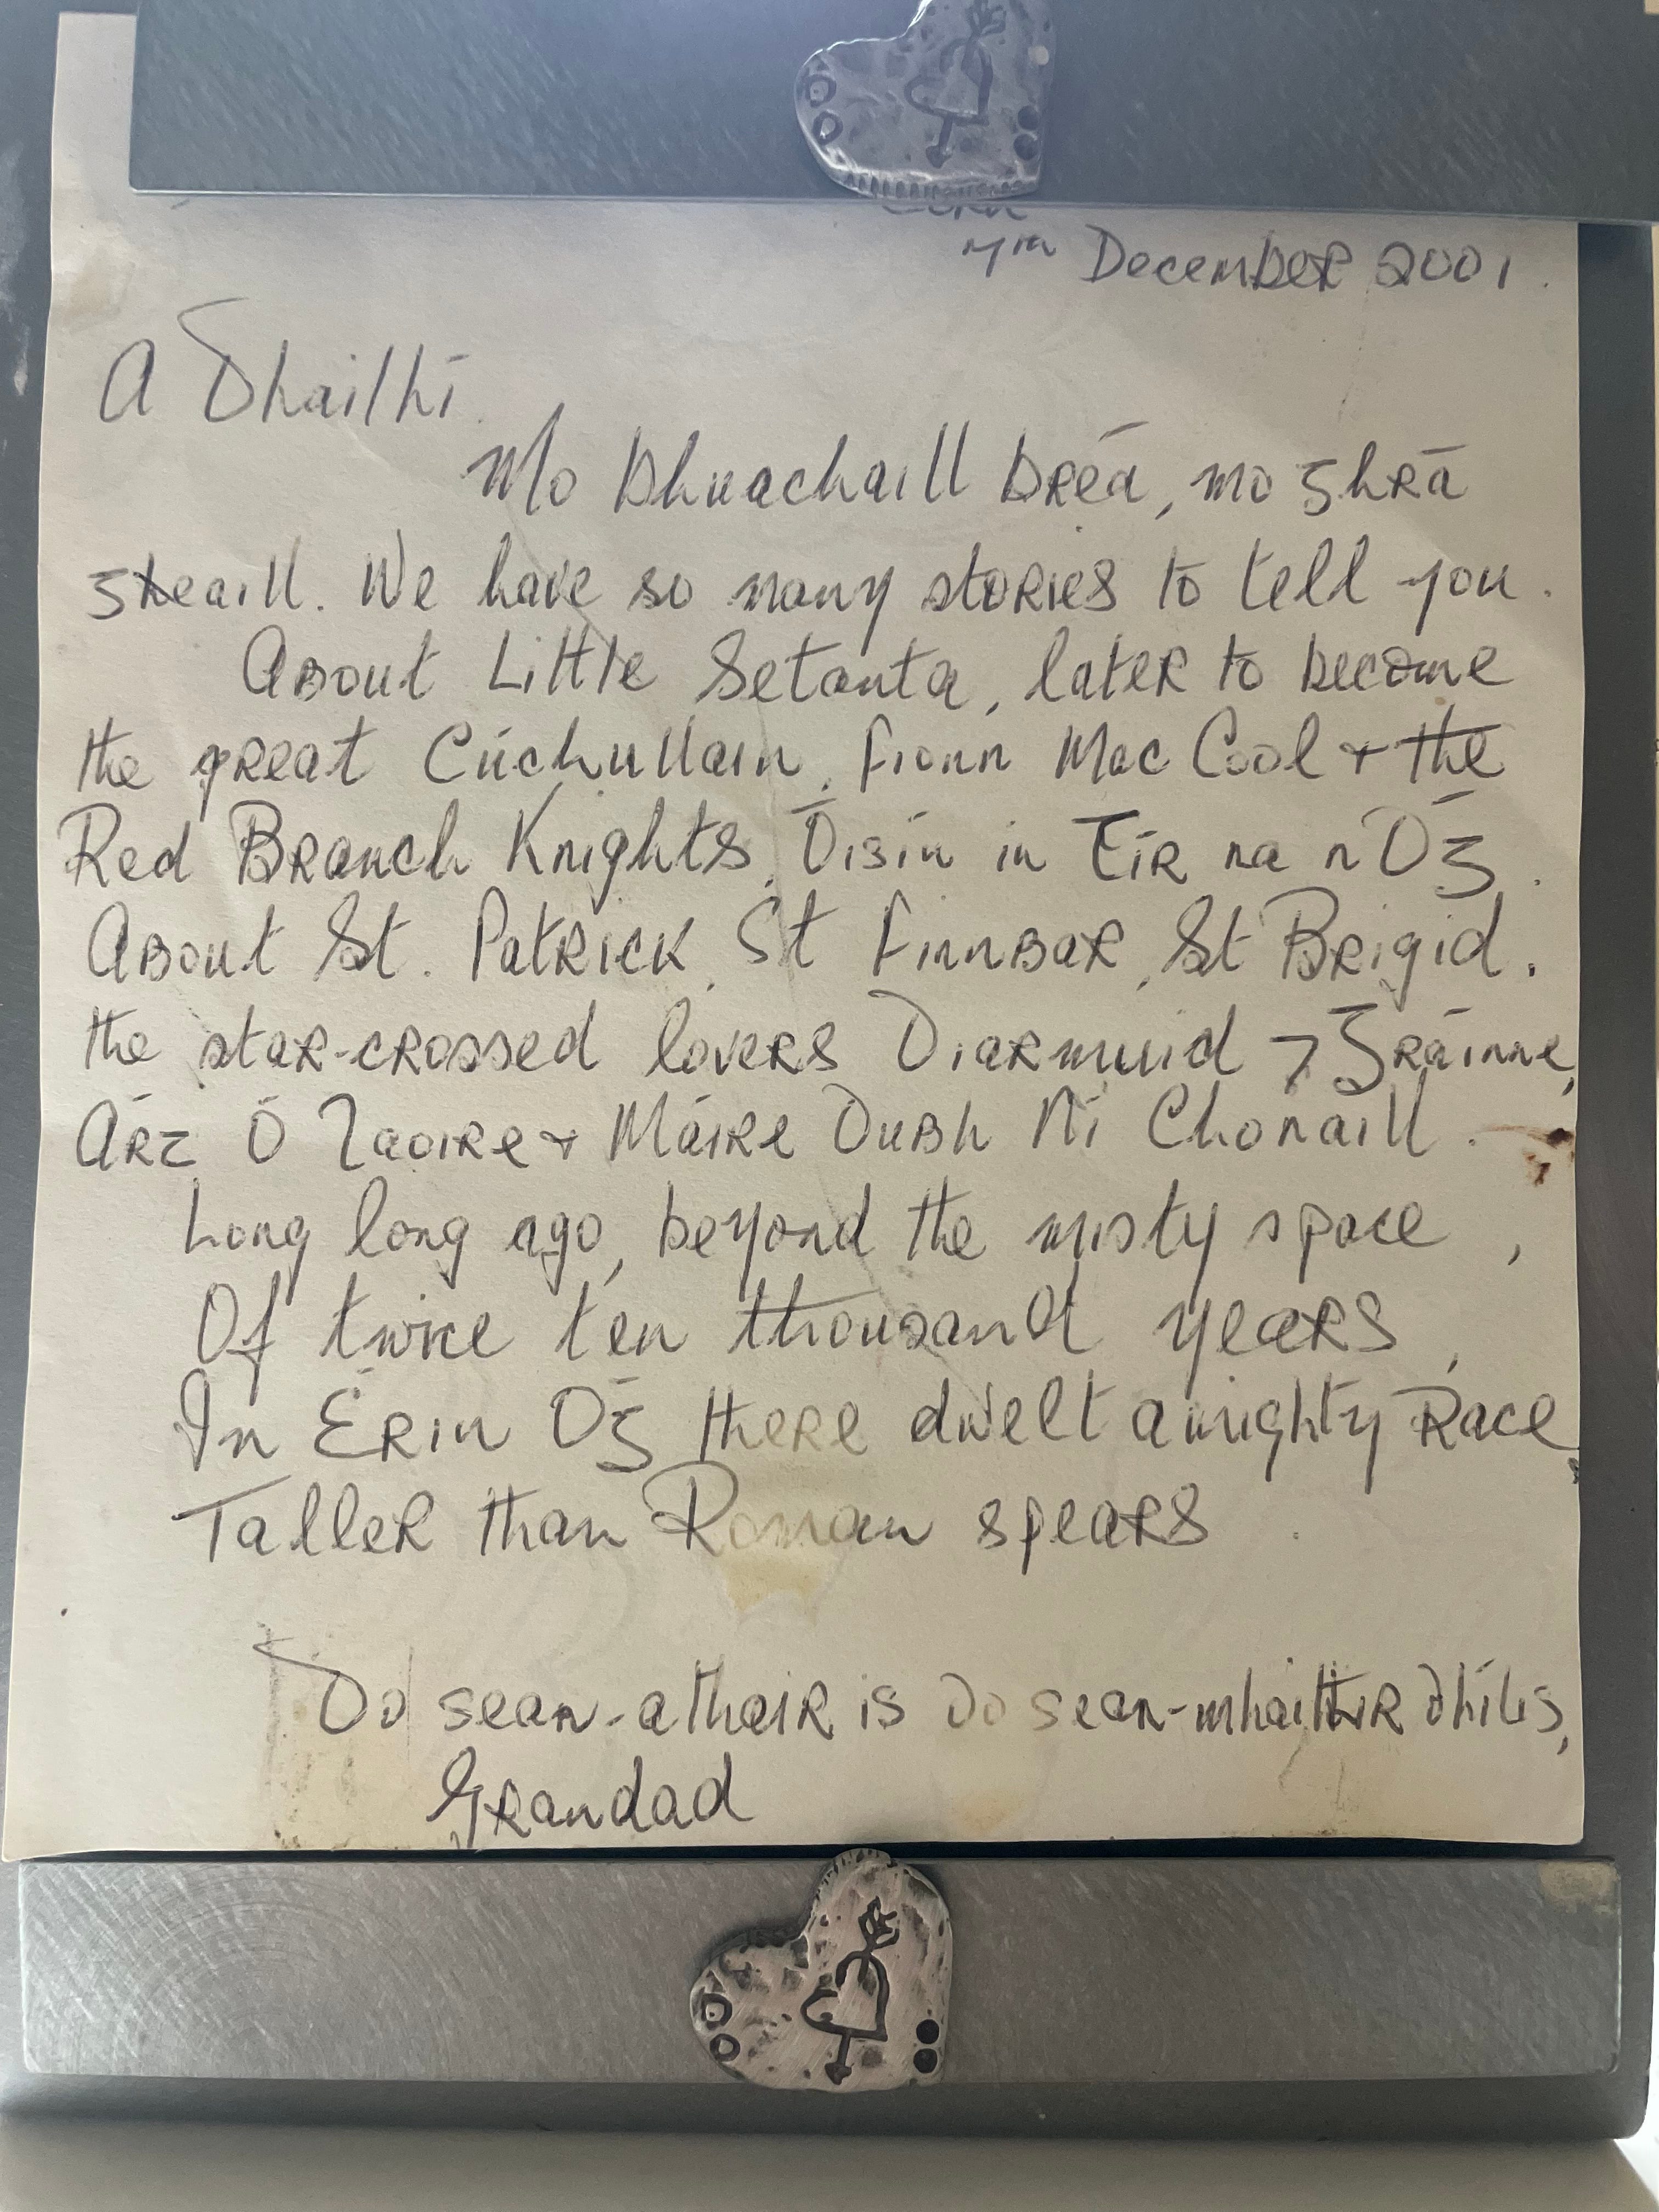 December 2001.
A Dhaithí
Mo bhuachaill breá, mo ghrá
gheaill. We have so many stories to tell you.
About Little Setanta, later to become
the great Cúchullain, Fionn Mac Cool + the
Red Branch Knights, Óisín in Tír na nÓg.
About St. Patrick, St Finnbar, St Brigid.
the star-crossed lovers Diarmuid ⁊ Gráinne,
Árt Ó Laoire + Máire Dubh Ní Chonaill.
Long long ago, beyond the misty space,
Of twice ten thousand years,
In Erin Óg there dwelt a mighty Race
Taller than Roman spears.
Do sean-athair is do sean-mhaithir dhílis,
Grandad